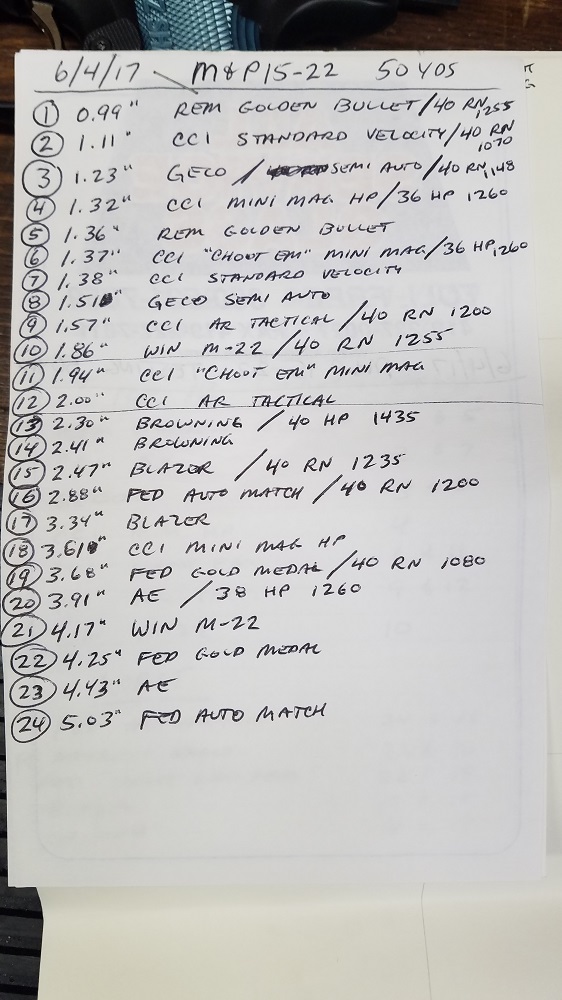 6/4/17 M&P15-22 50 YDS
1 0.99" REM GOLDEN BULLET/40 RN 1255
2 1.11" CCI STANDARD VELOCITY/40 RN 1070
3 1.23" GECO / SEMI AUTO/40 RN 1148
4 1.32" CCI MINI MAG HP/36 HP 1260
5 1.36" REM GOLDEN BULLET
6 1.37" CCI "CHOOT EM" MINI MAG/36 HP 1260
7 1.38" CCI STANDARD VELOCITY
8 1.51" GECO SEMI AUTO
9 1.57" CCI AR TACTICAL /40 RN 1200
10 1.86" WIN M-22 /40 RN 1255
11 1.94" CCI "CHOOT EM" MINI MAG
12 2.00" CCI AR TACTICAL
13 2.30" BROWNING / 40 HP 1435
14 2.41" BROWNING
15 2.47" BLAZER / 40 RN 1235
16 2.88" FED AUTO MATCH /40 RN 1200
17 3.34" BLAZER
18 3.61" CCI MINI MAG HP
19 3.68" FED GOLD MEDAL/40 RN 1080
20 3.91" AE / 38 HP 1260
21 4.17" WIN M-22
22 4.25" FED GOLD MEDAL
23 4.43" AE
24 5.03" FED AUTO MATCH